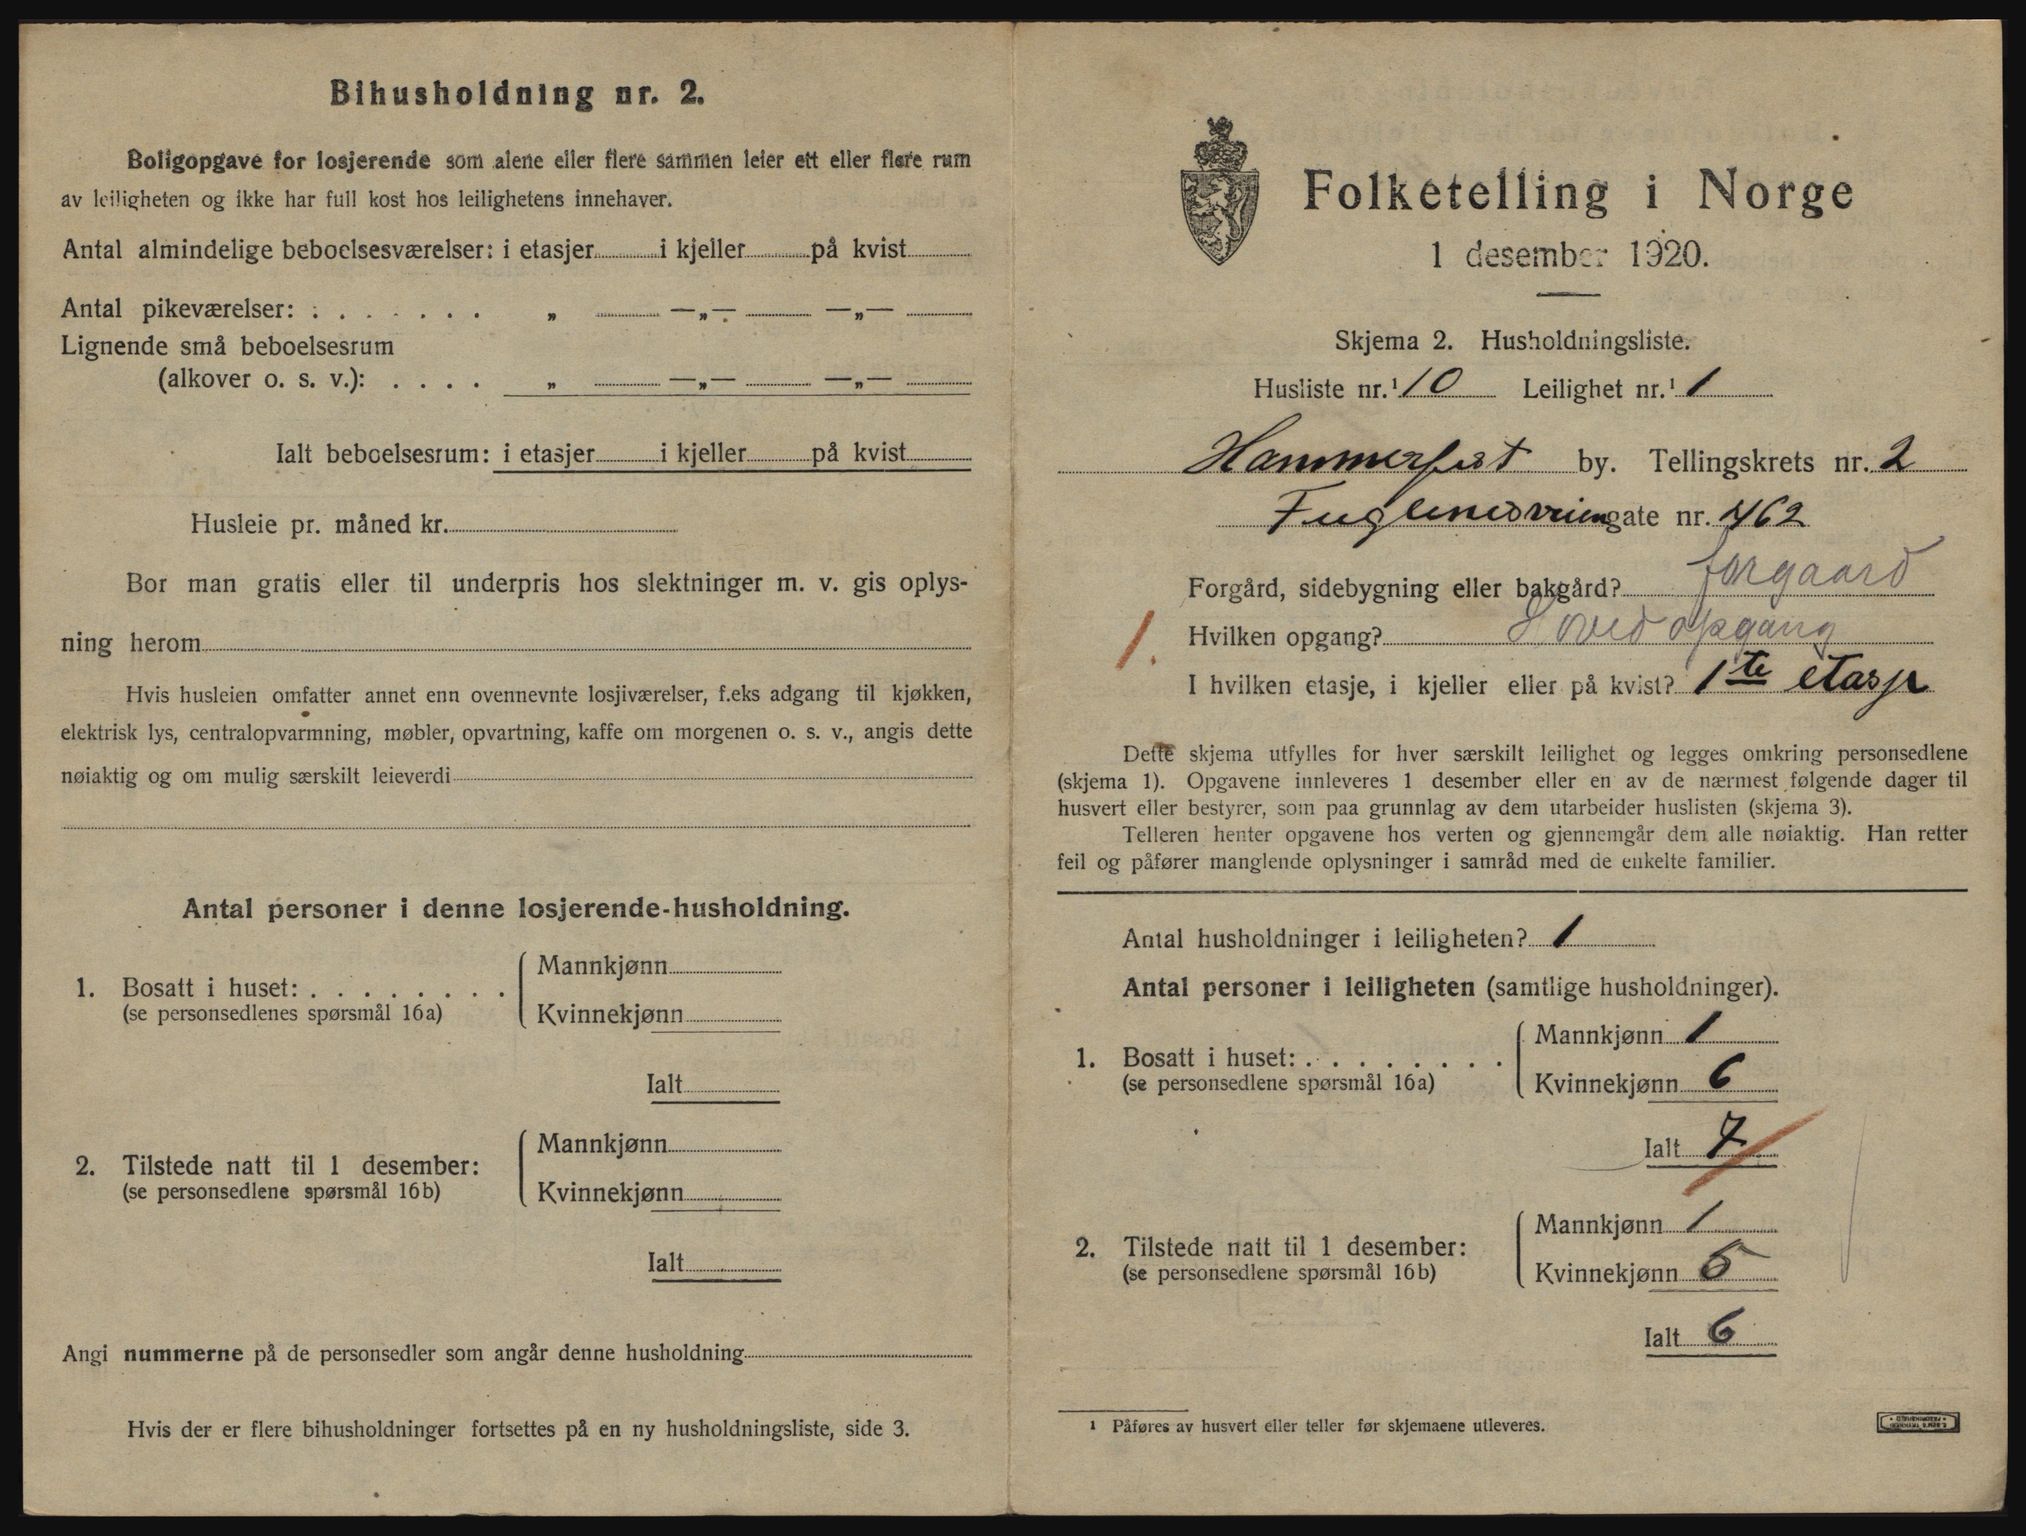 Bihusholdning nr. 2.
Boligopgave for losjerende som alene eller flere sammen leier ett eller flere rum
av leiligheten og ikke har full kost hos leilighetens innehaver.
Antal almindelige beboelsesværelser: i etasjer i kjeller på kvist
Antal pikeværelser: . . . . . . . „ —„— —„—
Lignende små beboelsesrum
(alkover o. s. v.): . . . . „ —„— —„—
Ialt beboelsesrum: i etasjer i kjeller på kvist
Husleie pr. måned kr.
Bor man gratis eller til underpris hos slektninger m. v. gis oplys-
ning herom
Hvis husleien omfatter annet enn ovennevnte losjiværelser, f.eks adgang til kjøkken,
elektrisk lys, centralopvarmning, møbler, opvartning, kaffe om morgenen o. s. v., angis dette
nøiaktig og om mulig særskilt leieverdi
Antal personer i denne losjerende-husholdning.
Mannkjønn
1. Bosatt i huset: . . . . . . . .
(se personsedlenes spørsmål 16a)
Kvinnekjønn
Ialt
Mannkjønn
2. Tilstede natt til 1 desember:
(se personsedlene spørsmål 16b)
Kvinnekjønn
Ialt
Angi nummerne på de personsedler som angår denne husholdning
Hvis der er flere bihusholdninger fortsettes på en ny husholdningsliste, side 3.
Folketelling i Norge
1 desember 1920.
Skjema 2. Husholdningsliste.
Husliste nr.¹ 10 Leilighet nr.¹ 1
Hammerfest by. Tellingskrets nr. 2
Fuglenesveien gate nr. 462
Forgård, sidebygning eller bakgård? forgaard
1. Hvilken opgang? Hovedopgang
I hvilken etasje, i kjeller eller på kvist? 1te etasje
Dette skjema utfylles for hver særskilt leilighet og legges omkring personsedlene
(skjema 1). Opgavene innleveres 1 desember eller en av de nærmest følgende dager til
husvert eller bestyrer, som paa grunnlag av dem utarbeider huslisten (skjema 3).
Telleren henter opgavene hos verten og gjennemgår dem alle nøiaktig. Han retter
feil og påfører manglende oplysninger i samråd med de enkelte familier.
Antal husholdninger i leiligheten? 1
Antal personer i leiligheten (samtlige husholdninger).
Mannkjønn 1
1. Bosatt i huset: . . . . . . . .
(se personsedlene spørsmål 16a)
Kvinnekjønn 6
Ialt 7
Mannkjønn 1
2. Tilstede natt til 1 desember:
(se personsedlene spørsmål 16b)
Kvinnekjønn 5
Ialt 6
¹ Påføres av husvert eller teller før skjemaene utleveres.